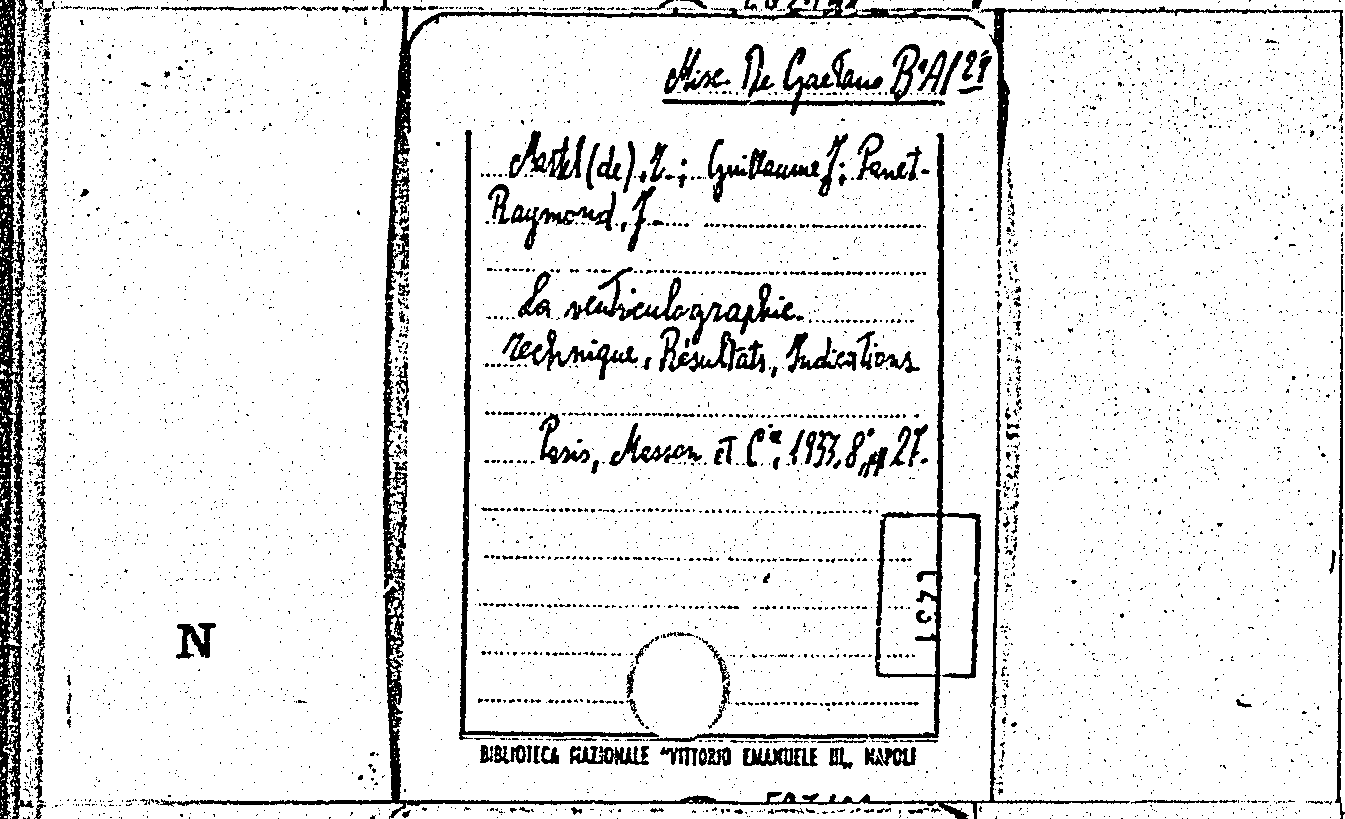 Misc. De Gaetano B.A/29
Martel (de), T.; Guillaume J; Panet-
Raymond, J.
La ventriculographie.
Technique, Résultats, Indications
N
Paris, Masson et Cie, 1933, 8°, pp 27.
BIBLIOTECA NAZIONALE "VITTORIO EMANUELE III„ NAPOLI